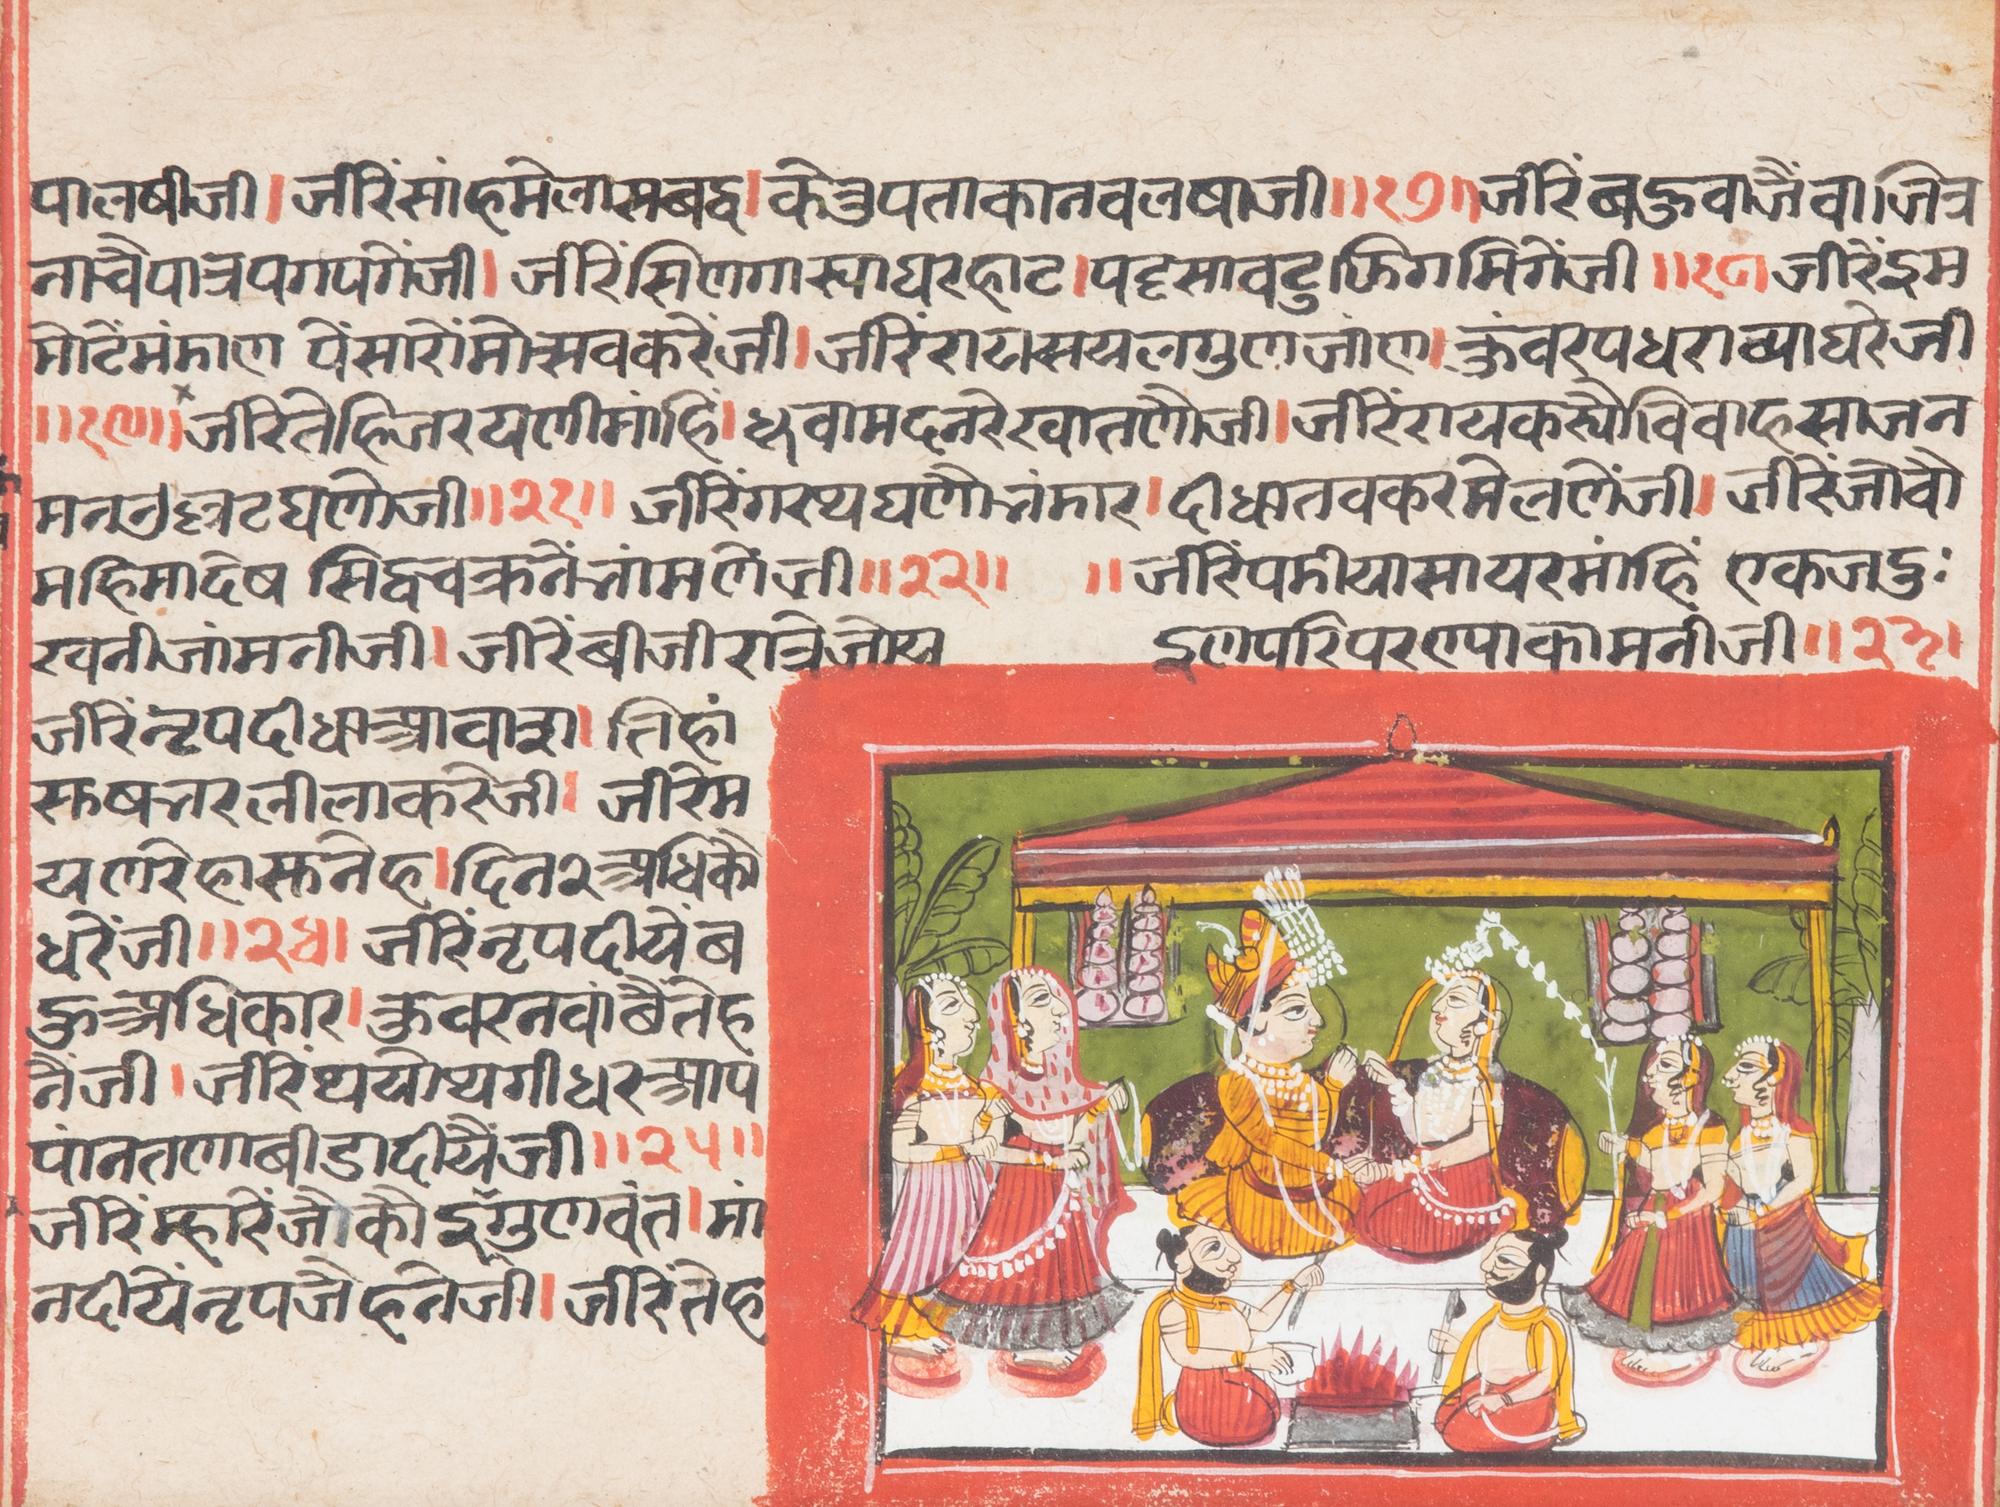 पालषीजी। जीरेंसांहमेलासबद्ध। केत्रुपताकानवलषाजी॥१७॥ जीरेंबहुवाजैंवाजित्र
नाचैपात्रपगपगेंजी। जीरेंसिणगास्याघरहाट। पट्टसावटु झिगमिगेंजी ॥१८॥ जीरेंइम
मोटेंमंमाण पेंसारोंमोत्सवकरेंजी। जीरेंरायासयलगुणजांण। कुंवरपधराव्याघरेजी
॥१९॥ जीरेतेहिजरयणीमांहिं। धुवामदनरेखातणौजी। जीरेंरायकस्यौविवाहसाजन
मनउद्दटघणोजी॥२१॥ जीरेंगरथघणौनंमार। दीधानवकरमेलणेंजी। जीरेंजोवौ
महिमादेष सिद्धचक्रनेंनांमणेंजी॥२२॥ ॥जीरेंपमीयासायरमांहिं एकजदुः
खनीजांमनीजी। जीरेंबीजीरात्रेजोय इणपरिपरण्याकामनींजी॥२३॥
जीरेंनृपदीधाआवास। तिहां
सुषनरलीलाकरेजी। जीरेम
यणरेहासुनेह। दिन२अधिकौ
धरेंजी॥२४॥ जीरेंनृपदीयेंब
हुअधिकार। कुवरनवांबैतेह
नैंजी। जीरेंथयोथगीधरआप
पांनतणाबीडादीयैंजी॥२५॥
जीरेंम्हारेंजौकौइंगुणवंत। मां
नदीयेंनृपजैहनेजी। जीरेंतेह